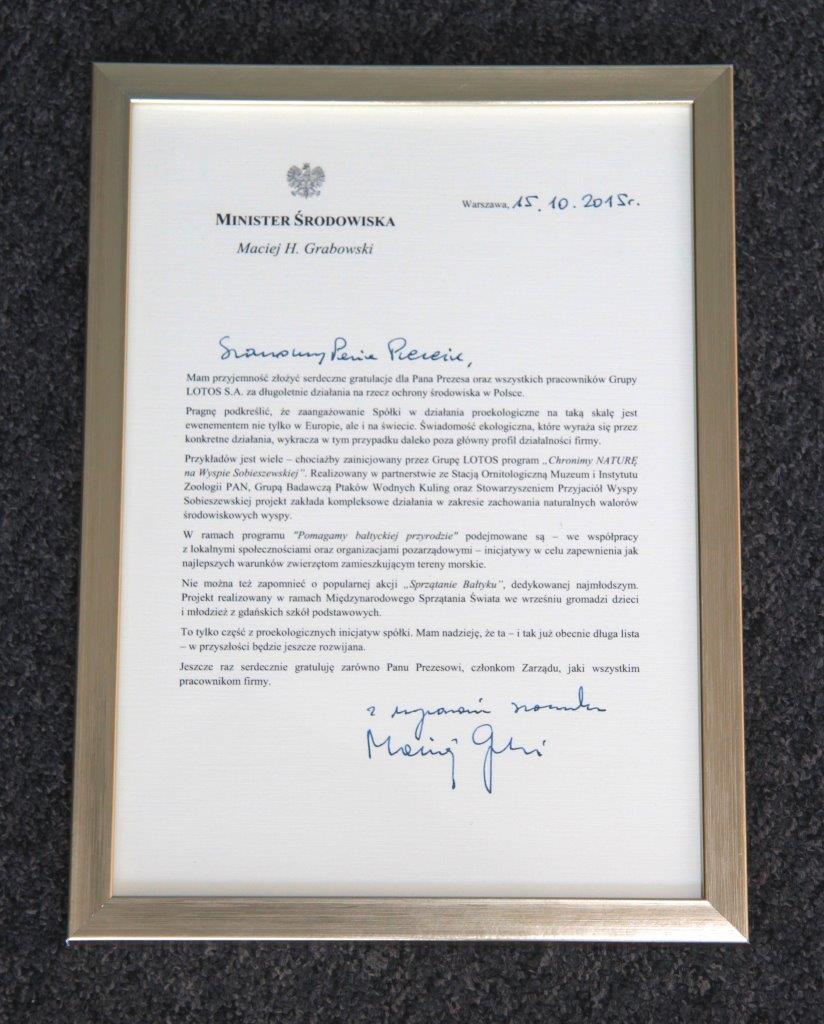 MINISTER ŚRODOWISKA
Maciej H. Grabowski
Warszawa, 15.10.2015r.
Szanowny Panie Prezesie,
Mam przyjemność złożyć serdeczne gratulacje dla Pana Prezesa oraz wszystkich pracowników Grupy
LOTOS S.A. za długoletnie działania na rzecz ochrony środowiska w Polsce.
Pragnę podkreślić, że zaangażowanie Spółki w działania proekologiczne na taką skalę jest
ewenementem nie tylko w Europie, ale i na świecie. Świadomość ekologiczna, które wyraża się przez
konkretne działania, wykracza w tym przypadku daleko poza główny profil działalności firmy.
Przykładów jest wiele – chociażby zainicjowany przez Grupę LOTOS program „Chronimy NATURĘ
na Wyspie Sobieszewskiej”. Realizowany w partnerstwie ze Stacją Ornitologiczną Muzeum i Instytutu
Zoologii PAN, Grupą Badawczą Ptaków Wodnych Kuling oraz Stowarzyszeniem Przyjaciół Wyspy
Sobieszewskiej projekt zakłada kompleksowe działania w zakresie zachowania naturalnych walorów
środowiskowych wyspy.
W ramach programu "Pomagamy bałtyckiej przyrodzie" podejmowane są – we współpracy
z lokalnymi społecznościami oraz organizacjami pozarządowymi – inicjatywy w celu zapewnienia jak
najlepszych warunków zwierzętom zamieszkującym tereny morskie.
Nie można też zapomnieć o popularnej akcji „Sprzątanie Bałtyku”, dedykowanej najmłodszym.
Projekt realizowany w ramach Międzynarodowego Sprzątania Świata we wrześniu gromadzi dzieci
i młodzież z gdańskich szkół podstawowych.
To tylko część z proekologicznych inicjatyw spółki. Mam nadzieję, że ta – i tak już obecnie długa lista
– w przyszłości będzie jeszcze rozwijana.
Jeszcze raz serdecznie gratuluję zarówno Panu Prezesowi, członkom Zarządu, jaki wszystkim
pracownikom firmy.
z wyrazami szacunku
Maciej